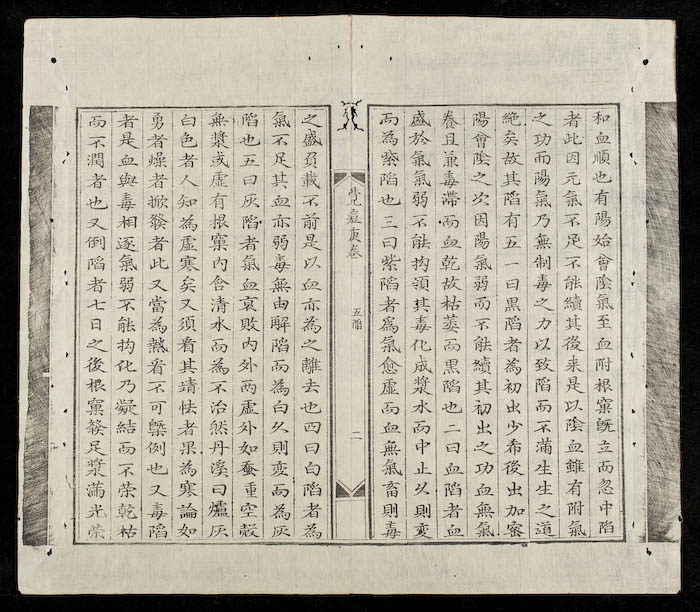 和血順也有陽始會陰氣至血附根窠既立而忽中陷
者此因元氣不足不能續其後来是以陰血雖有附氣
之功而陽氣乃無制毒之力以致陷而不滿生生之道
絶矣故其陷有五一曰黒陷者為初出少希後出加密
陽會陰之次因陽氣弱而不能續其初出之功血無氣
養且兼毒滯而血乾故枯萎而黒陷也二曰血陷者血
盛於氣氣弱不能拘領其毒化成漿水而中止久則変
而為紫陷也三曰紫陷者為氣愈虛而血無氣畜則毒
五陷
二
之盛負載不前是以血亦為之離去也四曰白陷者為
氣不足其血亦弱毒無由解陷而為白久則変而為灰
陷也五曰灰陷者氣血衰敗内外两虛外如蚕重空殼
無漿或虛有根窠内含清水而為不治然丹溪曰爐灰
白色者人知為虛寒矣又須看其靖怯者果為寒論如
勇者燥者掀發者此又當為熱看不可槩例也又毒陷
者是血與毒相逐氣弱不能拘化乃凝結而不荣乾枯
而不潤者也又倒陷者七日之後根窠發足漿滿光荣